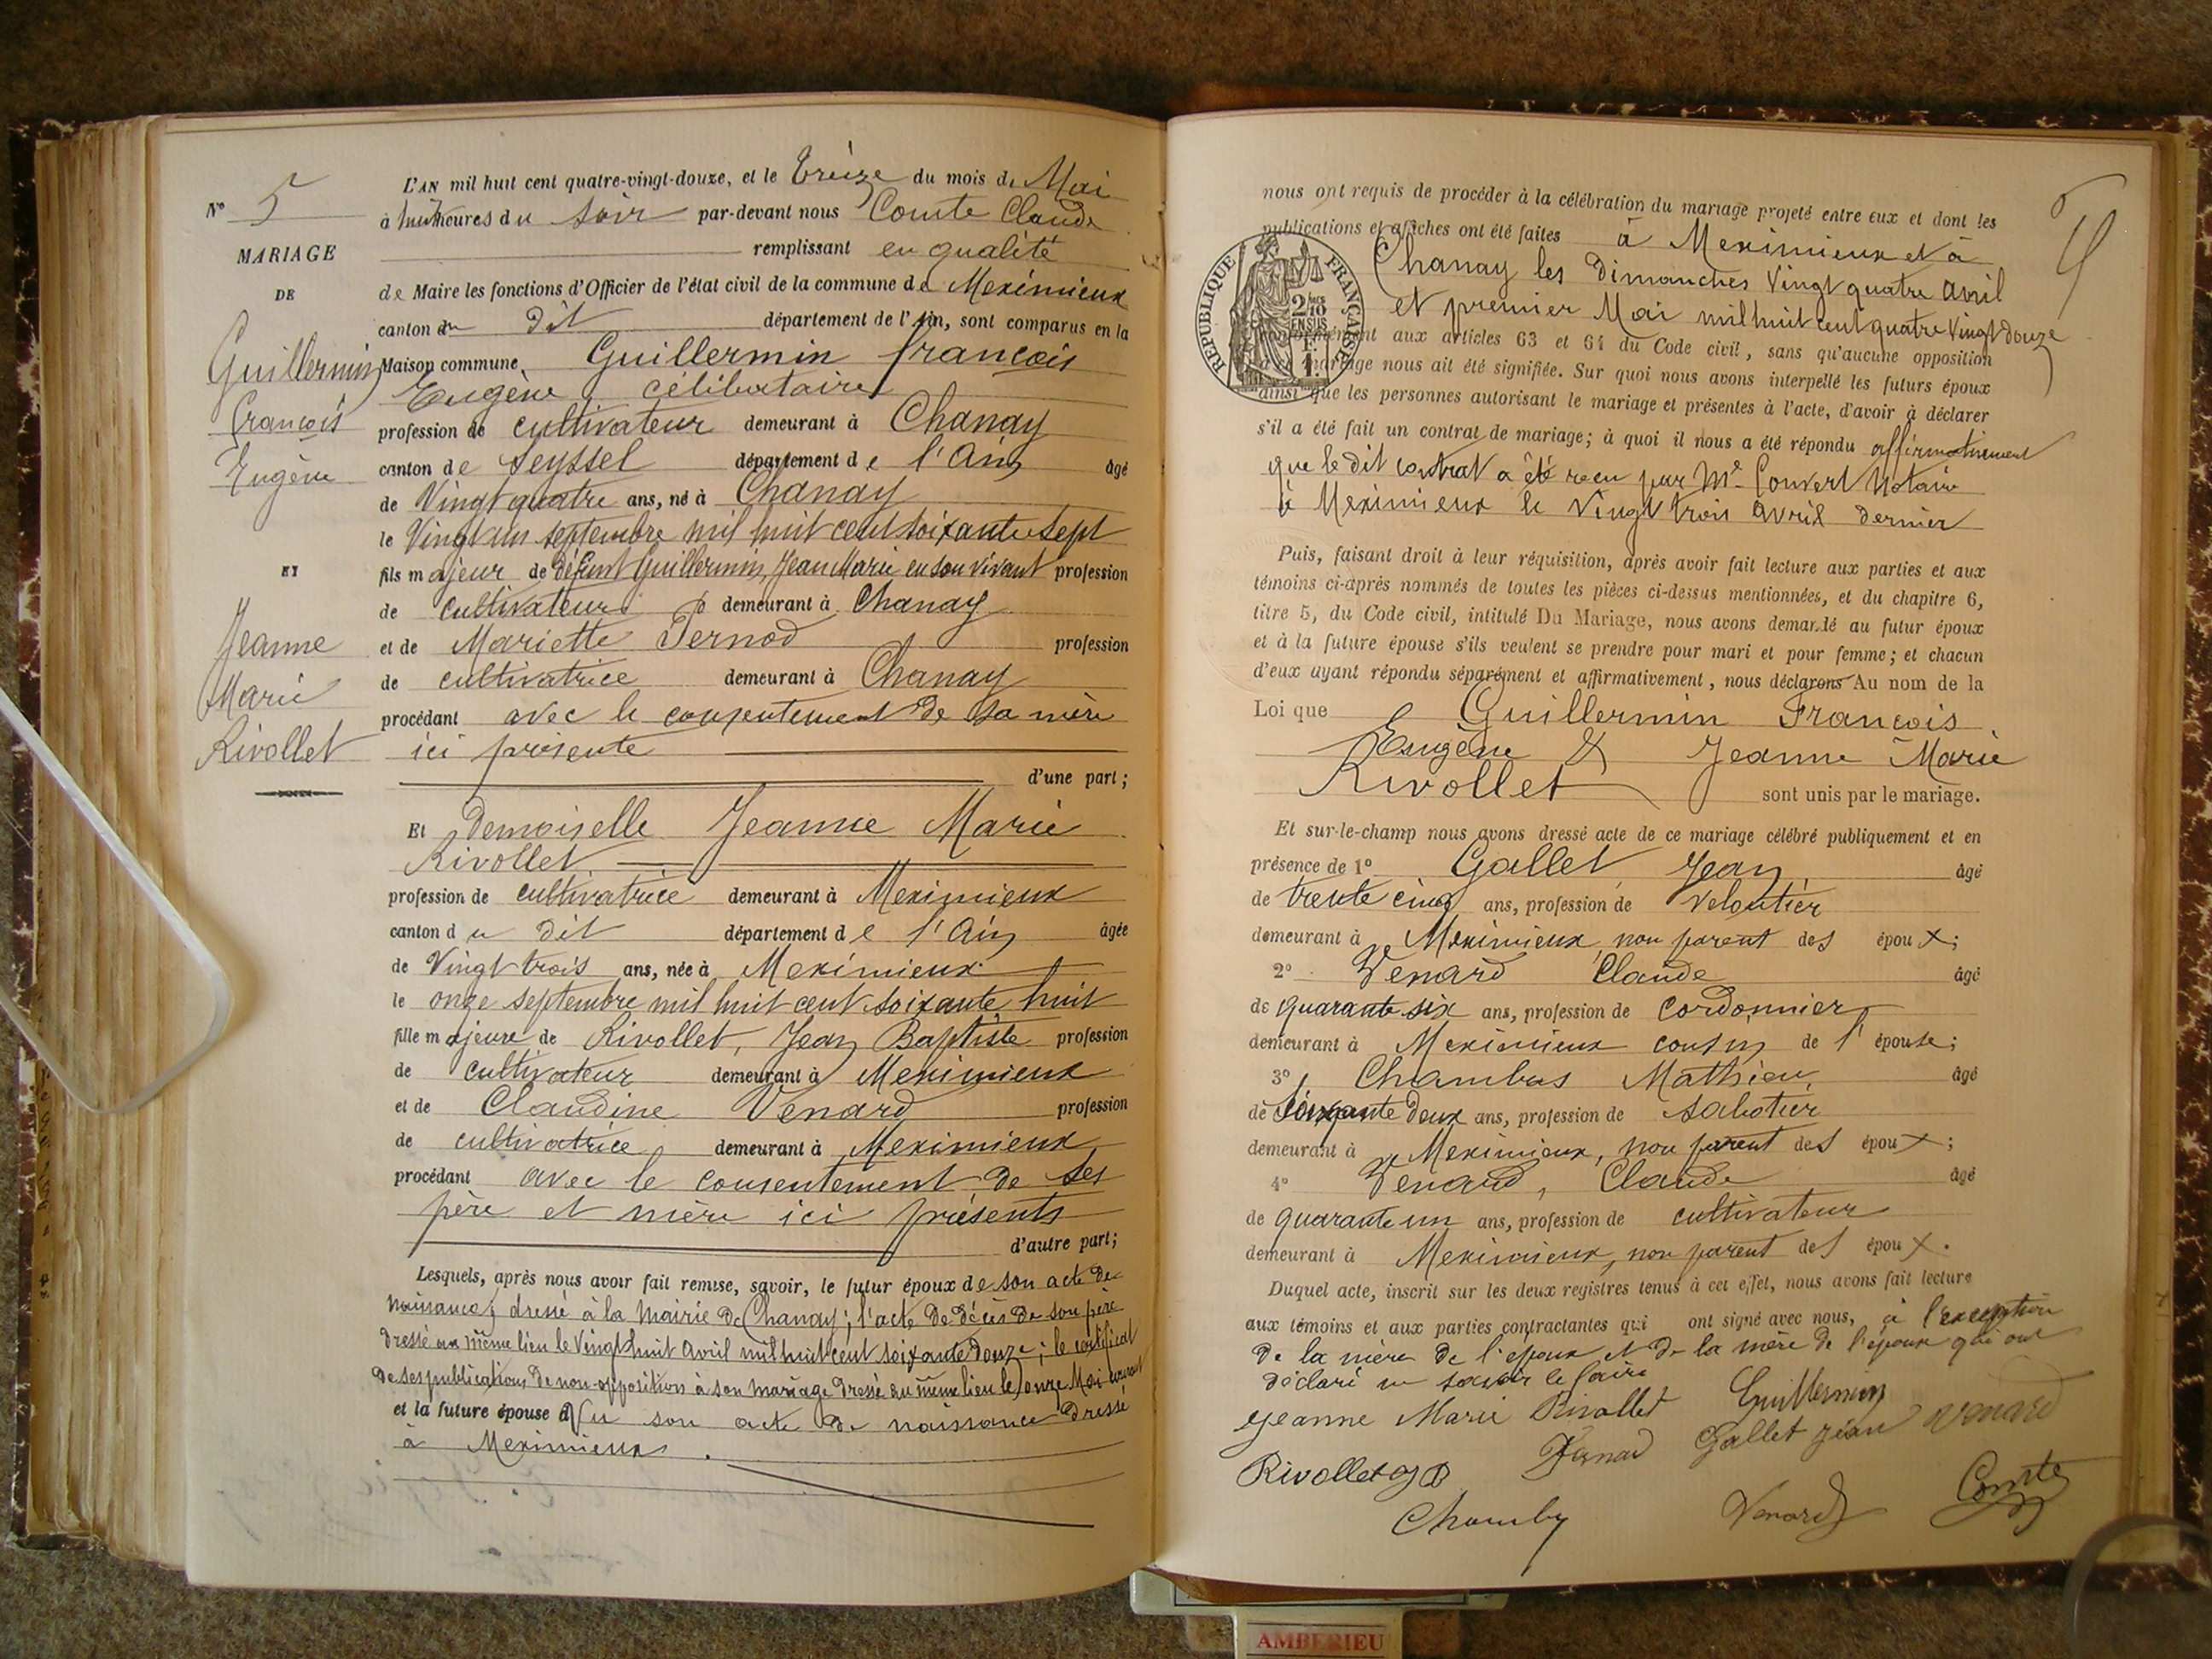 L'AN mil huit cent quatre-vingt-douze, et le treize du mois de Mai
N° 5
à huit heures du soir par-devant nous Comte Claude
remplissant en qualité
MARIAGE
DE
de Maire les fonctions d'Officier de l'état civil de la commune de Meximieux
canton du dit département de l'Ain, sont comparus en la
Guillermin
François
Eugène
Maison commune, Guillermin François
Eugène célibataire
profession de cultivateur demeurant à Chanay
canton de Seyssel département de l'Ain âgé
de Vingt quatre ans, né à Chanay
le Vingt un septembre mil huit cent soixante sept
ET
fils majeur de défunt Guillermin, Jean Marie en son vivant profession
de cultivateur demeurant à Chanay
Jeanne
Marie
Rivollet
et de Mariette Pernod profession
de cultivatrice demeurant à Chanay
procédant avec le consentement de sa mère
ici présente
d'une part;
Et Demoiselle Jeanne Marie
Rivollet
profession de cultivatrice demeurant à Meximieux
canton du dit département de l'Ain âgée
de Vingt trois ans, née à Meximieux
le onze septembre mil huit cent soixante huit
fille majeure de Rivollet, Jean Baptiste profession
de cultivateur demeurant à Meximieux
et de Claudine Venard profession
de cultivatrice demeurant à Meximieux
procédant avec le consentement de ses
père et mère ici présents
d'autre part;
Lesquels, après nous avoir fait remise, savoir, le futur époux de son acte de
naissance, dressé à la Mairie de Chanay; l'acte de décès de son père
dressé au même lieu le Vingt huit avril mil huit cent soixante douze; le certificat
de ses publications de non opposition à son mariage dressé au même lieu le onze Mai courant
et la future épouse son acte de naissance dressé
à Meximieux.
nous ont requis de procéder à la célébration du mariage projeté entre eux et dont les
publications et affiches ont été faites à Meximieux et à
Chanay les Dimanches Vingt quatre avril
et premier Mai mil huit cent quatre Vingt douze
RÉPUBLIQUE FRANÇAISE
2/10 EN SUS
aux articles 63 et 64 du Code civil, sans qu'aucune opposition
mariage nous ait été signifiée. Sur quoi nous avons interpellé les futurs époux
ainsi que les personnes autorisant le mariage et présentes à l'acte, d'avoir à déclarer
s'il a été fait un contrat de mariage; à quoi il nous a été répondu affirmativement
que le dit contrat a été reçu par Me Convert Notaire
à Meximieux le Vingt trois avril dernier
Puis, faisant droit à leur réquisition, après avoir fait lecture aux parties et aux
témoins ci-après nommés de toutes les pièces ci-dessus mentionnées, et du chapitre 6,
titre 5, du Code civil, intitulé Du Mariage, nous avons demandé au futur époux
et à la future épouse s'ils veulent se prendre pour mari et pour femme; et chacun
d'eux ayant répondu séparément et affirmativement, nous déclarons Au nom de la
Loi que Guillermin François
Eugène & Jeanne Marie
Rivollet sont unis par le mariage.
Et sur-le-champ nous avons dressé acte de ce mariage célébré publiquement et en
présence de 1° Gallet Jean, âgé
de trente cinq ans, profession de veloutier
demeurant à Meximieux, non parent des époux;
2° Venard Claude âgé
de quarante six ans, profession de cordonnier
demeurant à Meximieux cousin de l'épouse;
3° Mathieu, âgé
de deux ans, profession de sabotier
demeurant à Meximieux, non parent des époux;
4° Venard, Claude âgé
de quarante un ans, profession de cultivateur
demeurant à Meximieux, non parent des époux.
Duquel acte, inscrit sur les deux registres tenus à cet effet, nous avons fait lecture
aux témoins et aux parties contractantes qui ont signé avec nous, à l'exception
de la mère de l'époux et de la mère de l'épouse qui ont
déclaré ne savoir le faire
Jeanne Marie Rivollet Guillermin
Gallet Jean Venard
Rivollet J B
Venard Comte
AMBERIEU